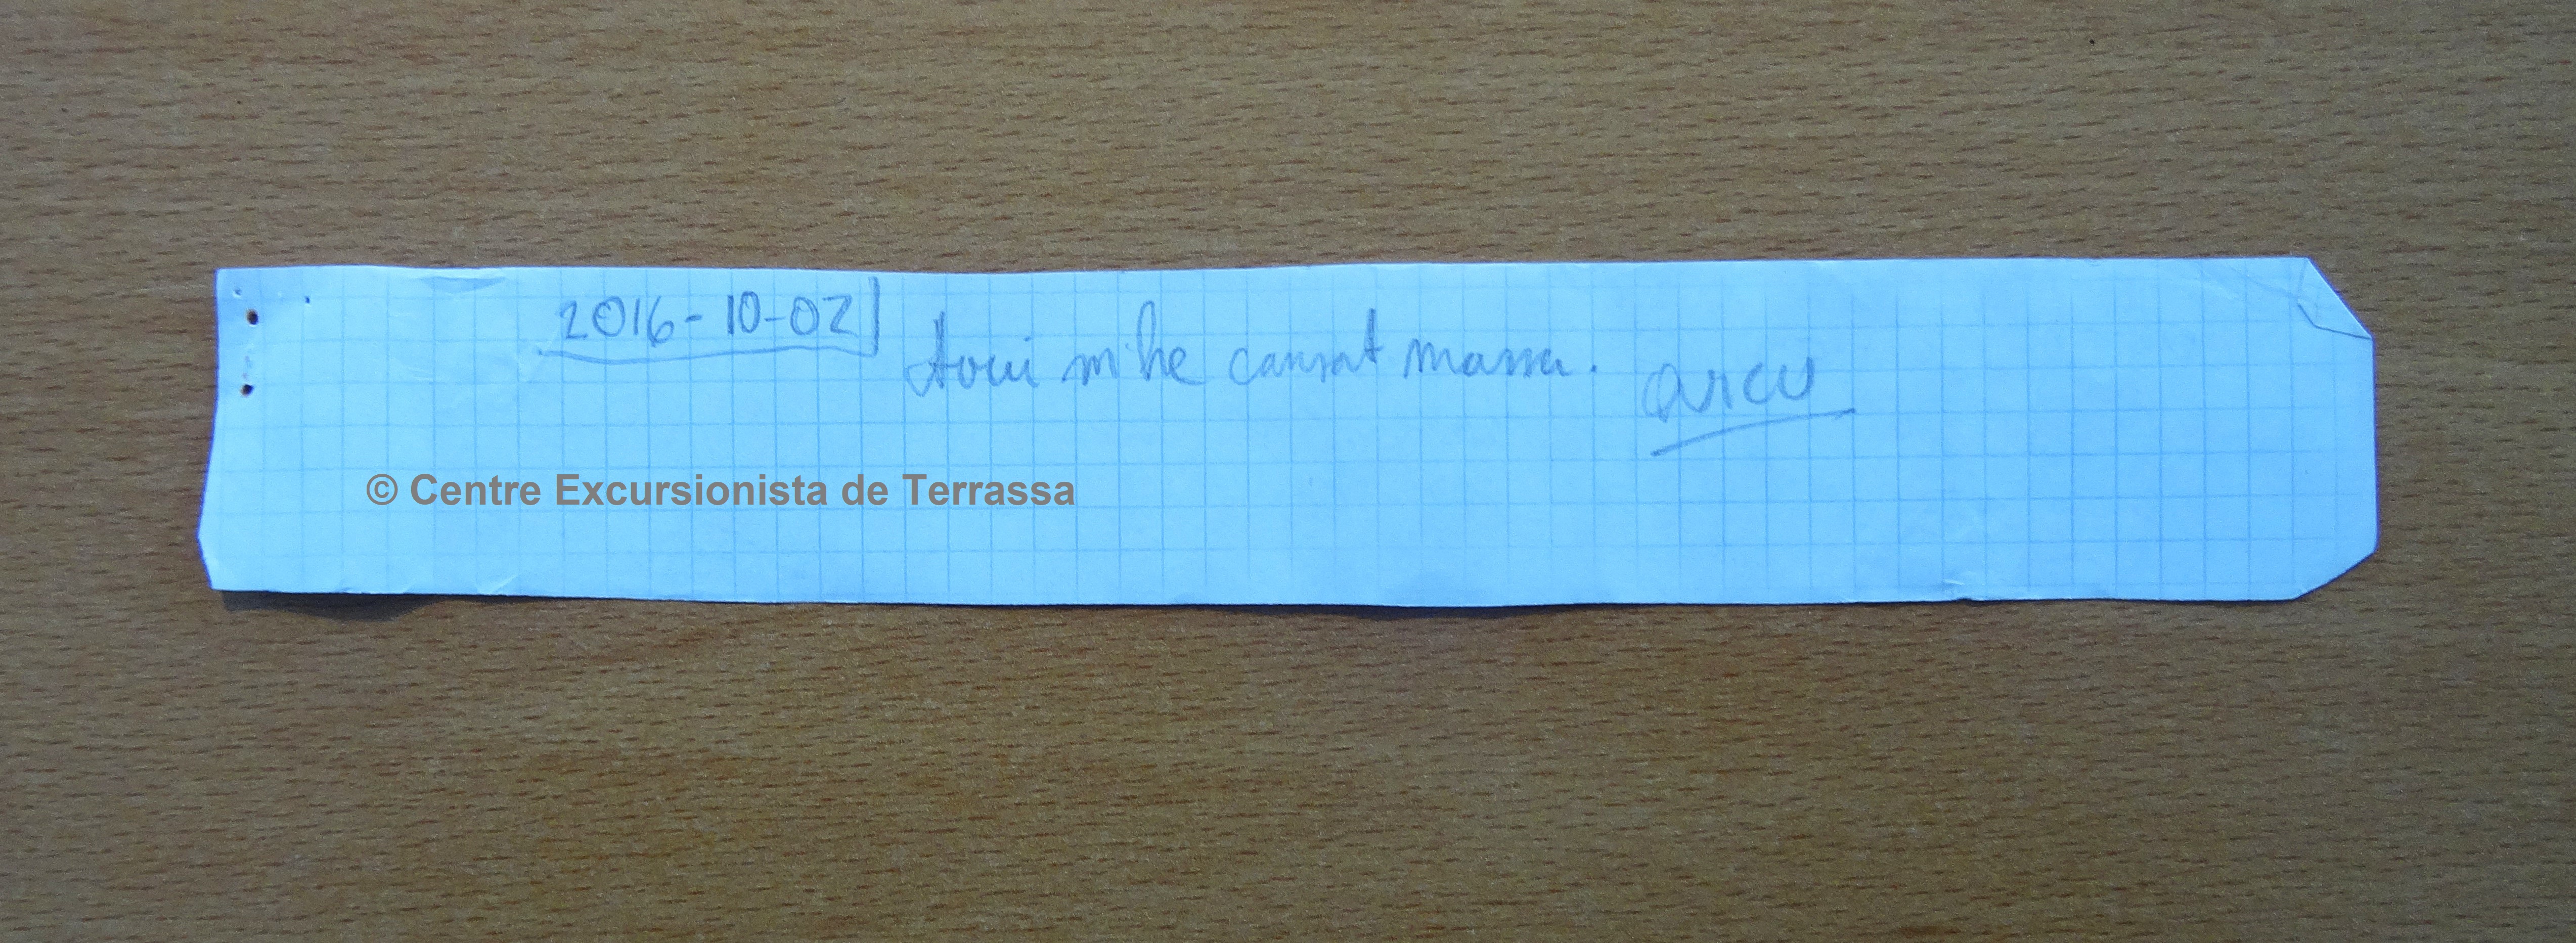 2016-10-02
Avui m'he cansat massa.
© Centre Excursionista de Terrassa